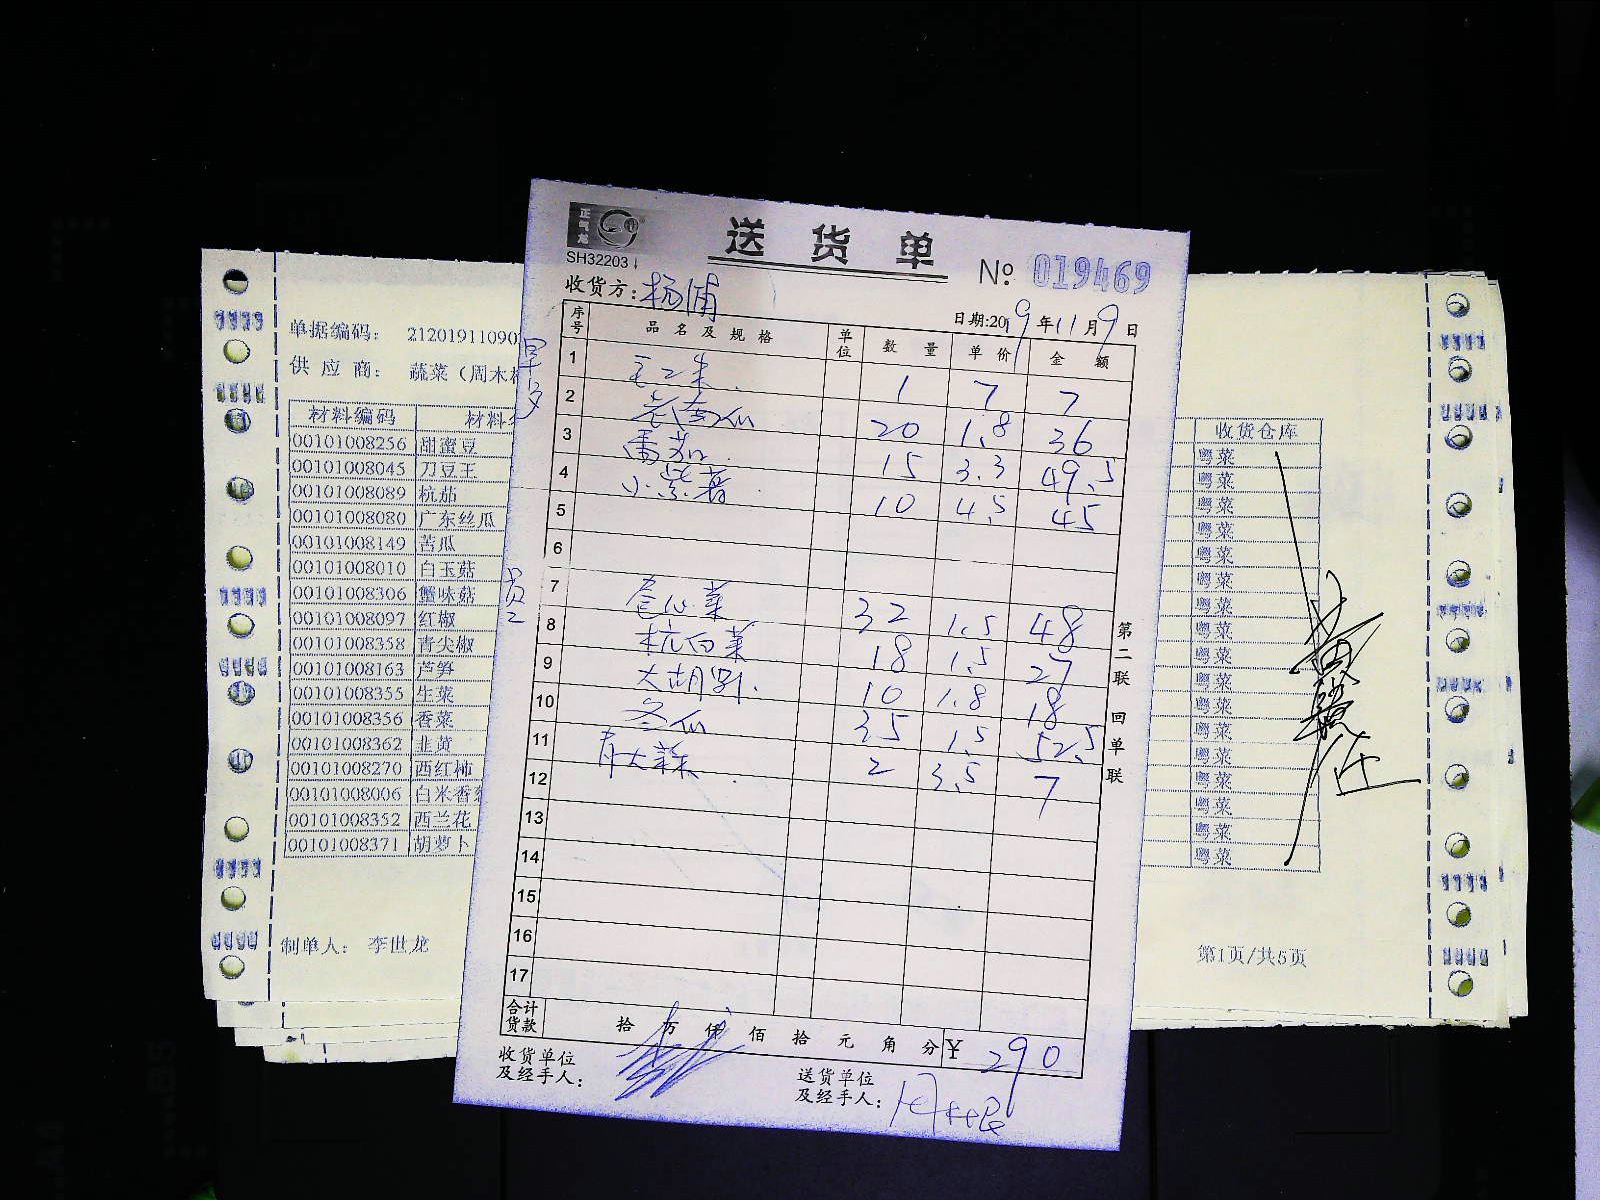 正气龙
SH32203
送货单
№ 019469
收货方: 杨浦
日期:2019年11月9日
序号 品名及规格 单位 数量 单价 金额
1 1 7 7
2 老南瓜 20 1.8 36
3 番茄 15 3.3 49.5
4 小紫薯 10 4.5 45
5
6
7 卷心菜 32 1.5 48
8 杭白菜 18 1.5 27
9 大胡 10 1.8 18
10 冬瓜 35 1.5 52.5
11 2 3.5 7
12
13
14
15
16
17
合计货款 拾 万 仟 佰 拾 元 角 分 ¥ 290
收货单位及经手人:
送货单位及经手人:
第二联 回单联
单据编码: 21201911090
供应商: 蔬菜(周木
材料编码 材料
00101008256 甜蜜豆
00101008045 刀豆王
00101008089 杭茄
00101008080 广东丝瓜
00101008149 苦瓜
00101008010 白玉菇
00101008306 蟹味菇
00101008097 红椒
00101008358 青尖椒
00101008163 芦笋
00101008355 生菜
00101008356 香菜
00101008362 韭黄
00101008270 西红柿
00101008006 白米香
00101008352 西兰花
00101008371 胡萝卜
制单人: 李世龙
收货仓库
粤菜
粤菜
粤菜
粤菜
粤菜
粤菜
粤菜
粤菜
粤菜
粤菜
粤菜
粤菜
粤菜
粤菜
粤菜
粤菜
粤菜
第1页/共5页